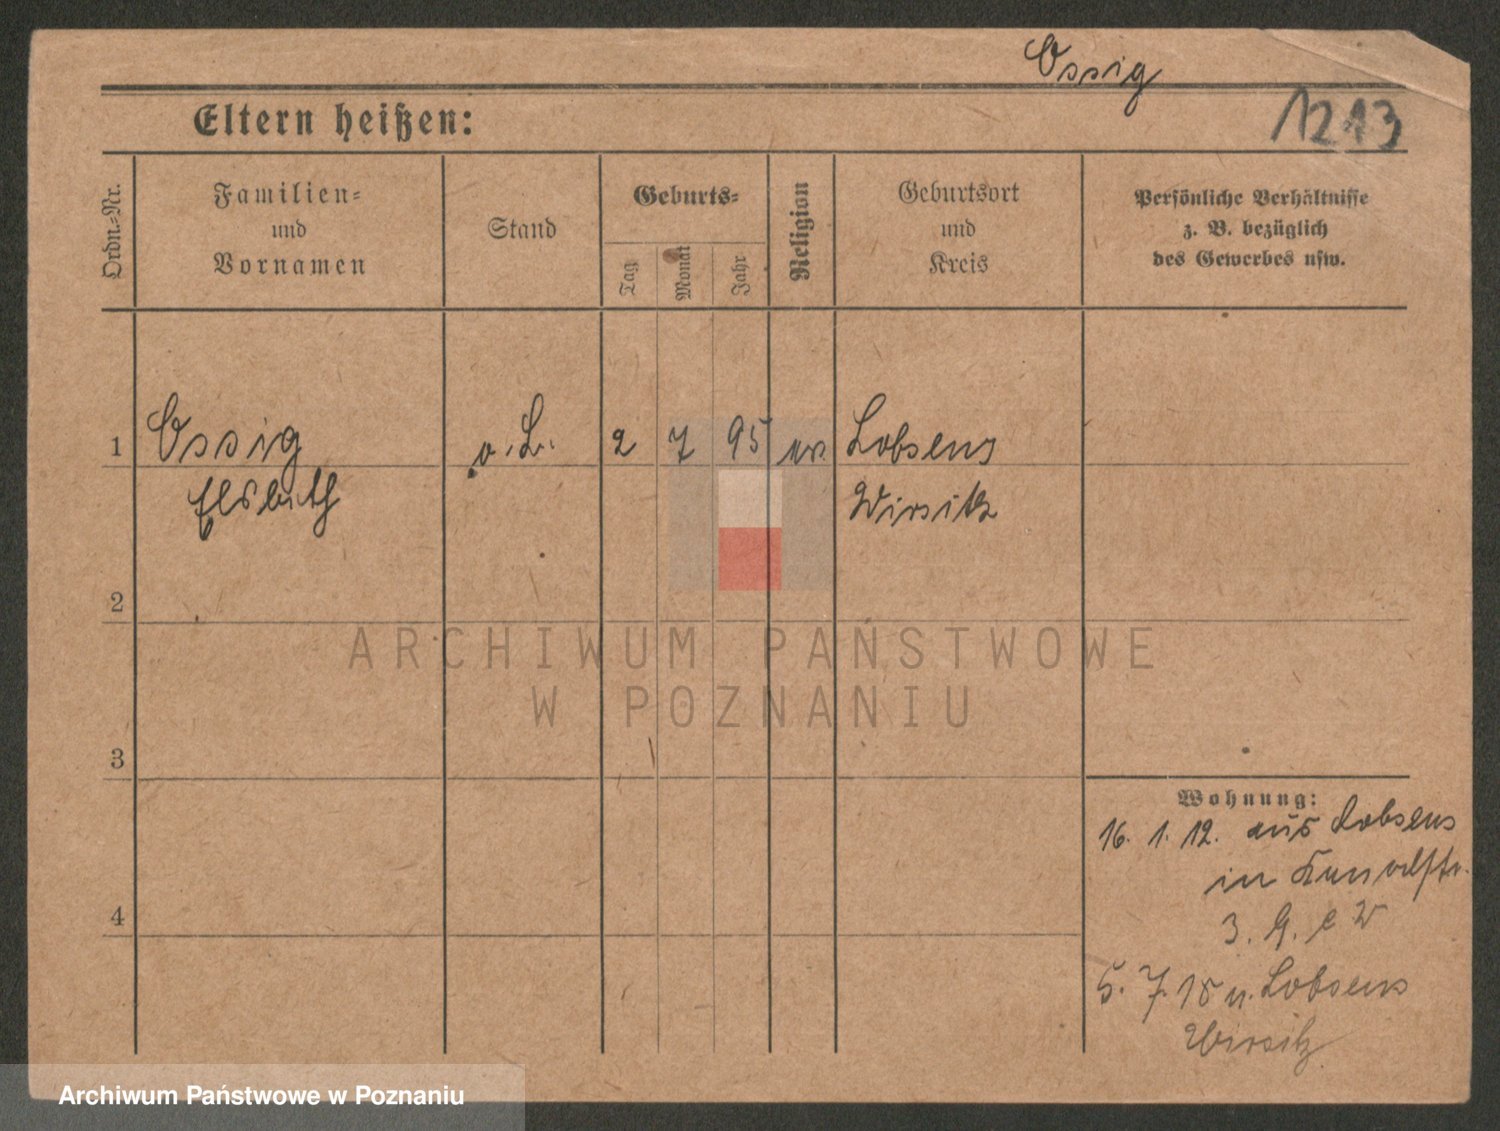 Ossig
1213
Eltern heißen:
Ordn.-Nr.
Familien-
und
Vornamen
Stand
Geburts-
Tag
Monat
Jahr
Religion
Geburtsort
und
Kreis
Persönliche Verhältnisse
z. B. bezüglich
des Gewerbes usw.
1 Ossig o. L. 2 7 95 ev. Lobsens
Elsbeth Wirsitz
2
ARCHIWUM PAŃSTWOWE
W POZNANIU
3
Wohnung:
16. 1. 12. aus Lobsens
in
3. G.
4
5. 7. 15 n. Lobsens
Wirsitz
Archiwum Państwowe w Poznaniu